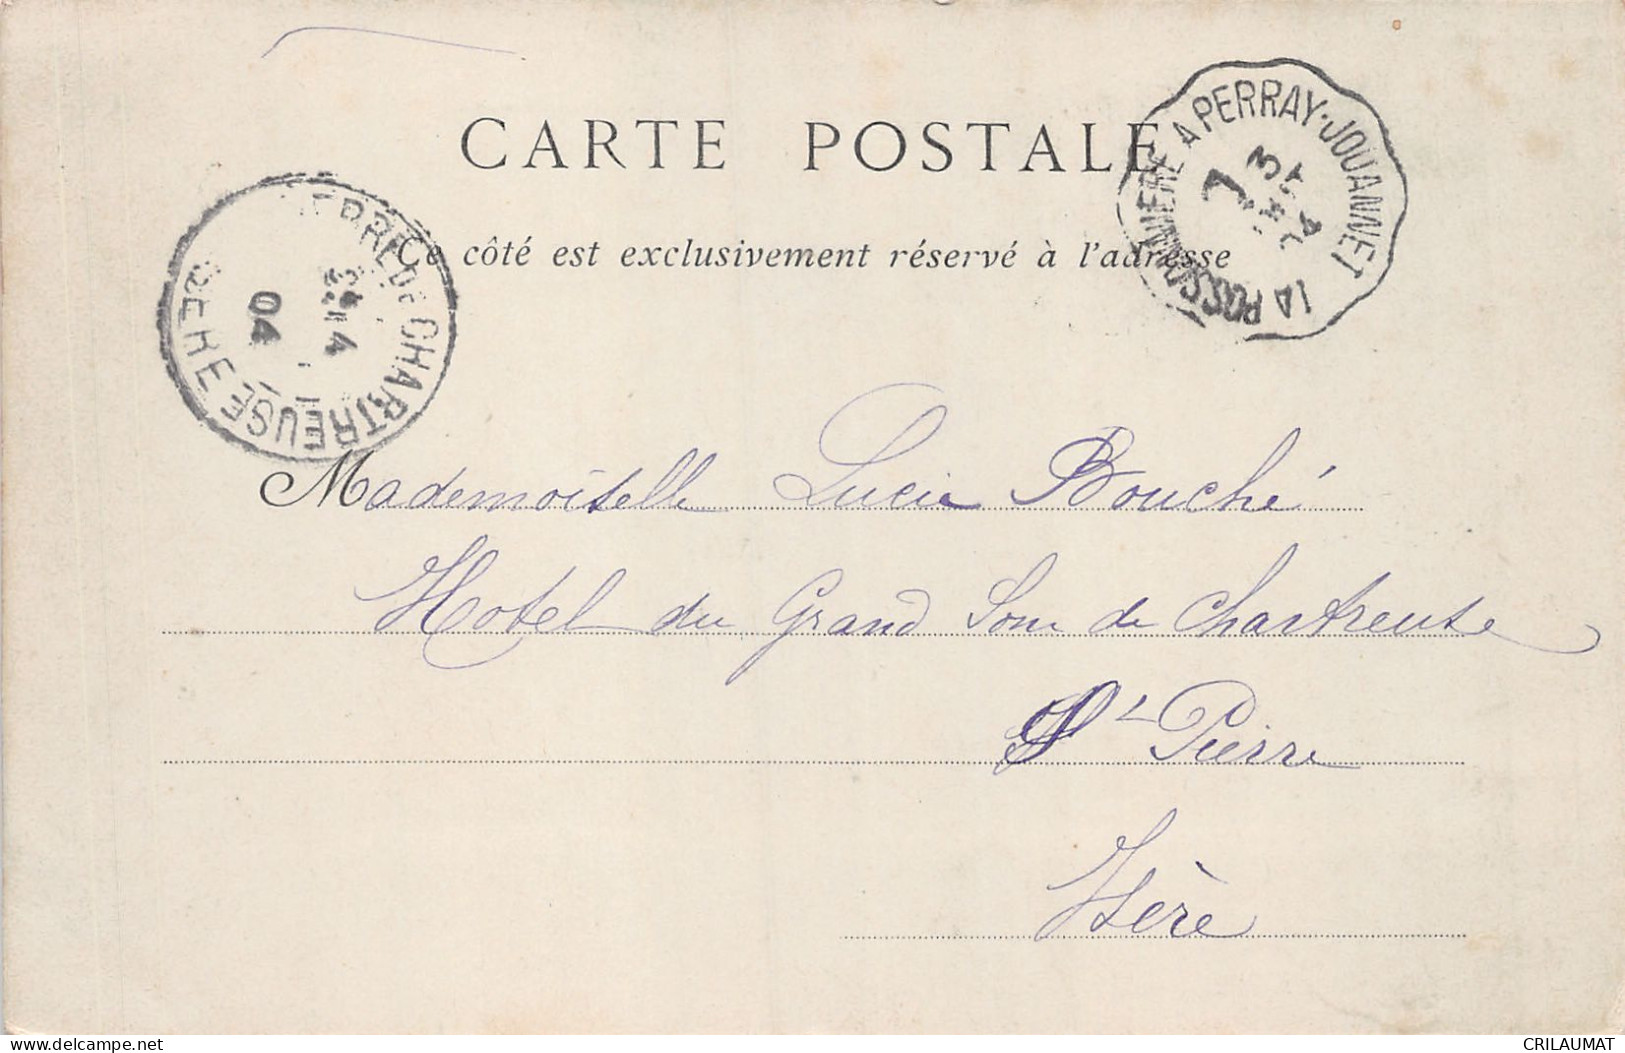 CARTE POSTALE
Ce côté est exclusivement réservé à l'adresse
LA POSSONNIERE A PERRAY-JOUANNET
PIERRE DE CHARTREUSE
ISERE
04
Mademoiselle Lucie Bouché
Hotel du Grand Som de Chartreuse
St Pierre
Isère
https://www.delcampe.net
CRILAUMAT